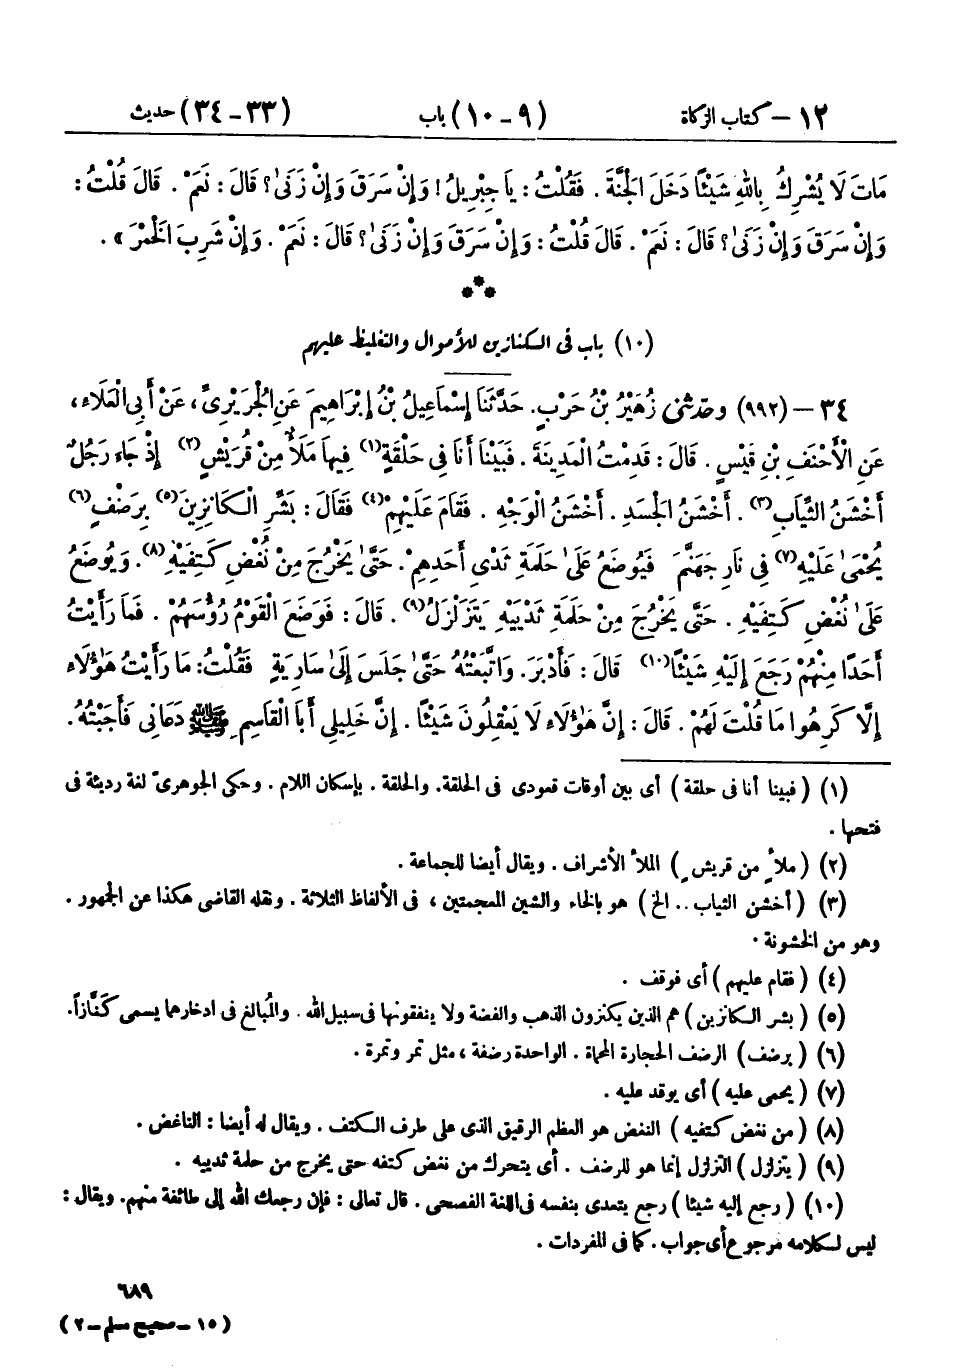 ١٢ – كتاب الزكاة (٩ – ١٠) باب (٣٣ – ٣٤) حديث
مَاتَ لَا يُشْرِكُ بِاللهِ شَيْئًا دَخَلَ الْجَنَّةَ . فَقُلْتُ : يَا جِبْرِيلُ ! وَإِنْ سَرَقَ وَإِنْ زَنَىٰ ؟ قَالَ : نَعَمْ . قَالَ قُلْتُ :
وَإِنْ سَرَقَ وَإِنْ زَنَىٰ ؟ قَالَ : نَعَمْ . قَالَ قُلْتُ : وَإِنْ سَرَقَ وَإِنْ زَنَىٰ ؟ قَالَ : نَعَمْ . وَإِنْ شَرِبَ الْخَمْرَ » .
(١٠) باب فى الكنازين للأموال والتغليظ عليهم
٣٤ – (٩٩٢) وحدثنى زُهَيْرُ بْنُ حَرْبٍ. حَدَّثَنَا إِسْمَاعِيلُ بْنُ إِبْرَاهِيمَ عَنِ الْجُرَيْرِىِّ ، عَنْ أَبِى الْعَلَاءِ ،
عَنِ الْأَحْنَفِ بْنِ قَيْسٍ . قَالَ : قَدِمْتُ الْمَدِينَةَ . فَبَيْنَا أَنَا فِى حَلْقَةٍ(١) فِيهَا مَلَأٌ مِنْ قُرَيْشٍ(٢) إِذْ جَاءَ رَجُلٌ
أَخْشَنُ الثِّيَابِ(٣) . أَخْشَنُ الْجَسَدِ . أَخْشَنُ الْوَجْهِ . فَقَامَ عَلَيْهِمْ(٤) فَقَالَ : بَشِّرِ الْكَانِزِينَ(٥) بِرَضْفٍ(٦)
يُحْمَىٰ عَلَيْهِ(٧) فِى نَارِ جَهَنَّمَ فَيُوضَعُ عَلَىٰ حَلَمَةِ ثَدْىِ أَحَدِهِمْ . حَتَّىٰ يَخْرُجَ مِنْ نُغْضِ كَتِفَيْهِ(٨). وَيُوضَعُ
عَلَىٰ نُغْضِ كَتِفَيْهِ . حَتَّى يَخْرُجَ مِنْ حَلَمَةِ ثَدْيَيْهِ يَتَزَلْزَلُ(٩) . قَالَ : فَوَضَعَ الْقَوْمُ رُؤُسَهُمْ . فَمَا رَأَيْتُ
أَحَدًا مِنْهُمْ رَجَعَ إِلَيْهِ شَيْئًا(١٠) قَالَ : فَأَدْبَرَ. وَاتَّبَعْتُهُ حَتَّىٰ جَلَسَ إِلَىٰ سَارِيَةٍ فَقُلْتُ : مَا رَأَيْتُ هَٰؤُلَاءِ
إِلَّا كَرِهُوا مَا قُلْتَ لَهُمْ . قَالَ : إِنَّ هَٰؤُلَاءِ لَا يَعْقِلُونَ شَيْئًا . إِنَّ خَلِيلِى أَبَا الْقَاسِمِ ﷺ دَعَانِى فَأَجَبْتُهُ .
(١) ( فبينا أنا فى حلقة ) أى بين أوقات قعودى فى الحلقة. والحلقة . بإسكان اللام . وحكى الجوهرىّ لغة رديئة فى
فتحها .
(٢) ( ملأٌ من قريشٍ ) الملأ الأشراف . ويقال أيضا للجماعة .
(٣) ( أخشن الثياب .. الخ ) هو بالخاء والشين المعجمتين ، فى الألفاظ الثلاثة . ونقله القاضى هكذا عن الجمهور .
وهو من الخشونة .
(٤) ( فقام عليهم ) أى فوقف .
(٥) ( بشر الكانزين ) هم الذين يكنزون الذهب والفضة ولا ينفقونها فى سبيل الله . والمُبالغ فى ادخارهما يسمى كَنَّازاً.
(٦) ( برضف ) الرضف الحجارة المحماة . الواحدة رضفة ، مثل تمر وتمرة .
(٧) ( يحمى عليه ) أى يوقد عليه .
(٨) ( من نغض كتفيه ) النغض هو العظم الرقيق الذى على طرف الكتف . ويقال له أيضا : الناغض .
(٩) ( يتزلزل ) التزلزل إنما هو للرضف . أى يتحرك من نغض كتفه حتى يخرج من حلمة ثدييه .
(١٠) ( رجع إليه شيئا ) رجع يتعدى بنفسه فى اللغة الفصحى . قال تعالى : فإن رجعك الله إلى طائفة منهم. ويقال :
ليس لكلامه مرجوع أى جواب . كما فى المفردات .
٦٨٩
(١٥ – صحيح مسلم – ٢)